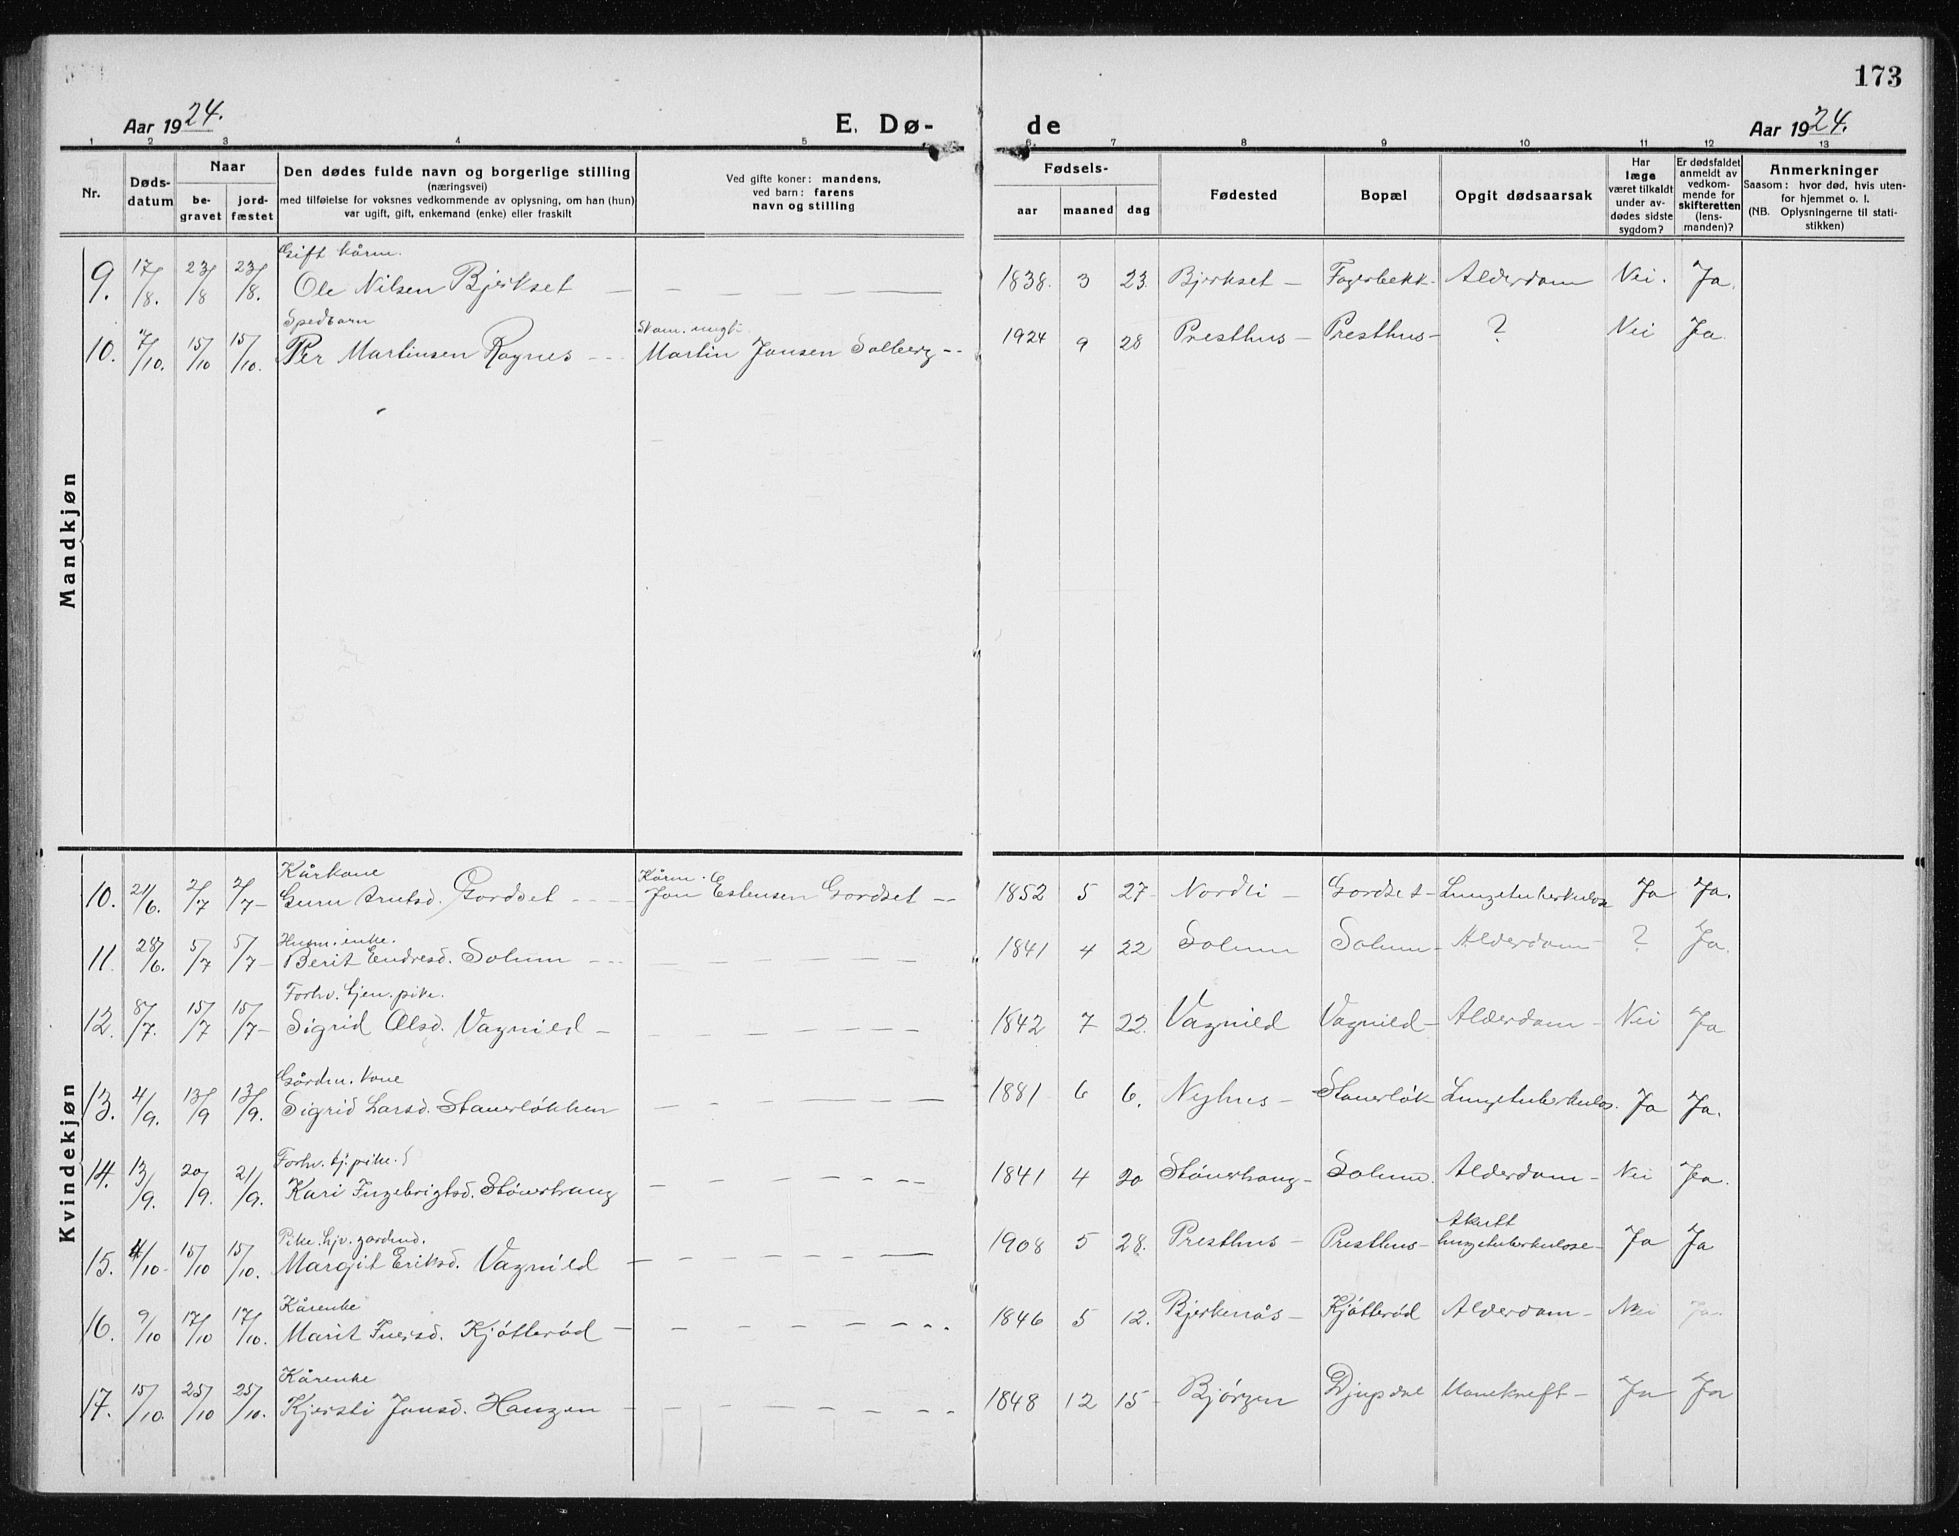 173
Aar 1924.
E. Dø-
de
Aar 1924.
1 2 3 4 5 6 7 8 9 10 11 12 13
Nr.
Døds-
datum
Naar
be-
gravet
jord-
fæstet
Den dødes fulde navn og borgerlige stilling
(næringsvei)
med tilføielse for voksnes vedkommende av oplysning, om han (hun)
var ugift, gift, enkemand (enke) eller fraskilt
Ved gifte koner: mandens,
ved barn: farens
navn og stilling
Fødsels-
aar maaned dag
Fødested
Bopæl
Opgit dødsaarsak
Har
læge
været tilkaldt
under av-
dødes sidste
sygdom?
Er dødsfaldet
anmeldt av
vedkom-
mende for
skifteretten
(lens-
manden)?
Anmerkninger
Saasom: hvor død, hvis uten-
for hjemmet o. l.
(NB. Oplysningerne til stati-
stikken)
Mandkjøn
Gift kårm.
9. 17/8. 23/8 23/8. Ole Nilsen Bjerkset — 1838. 3 23. Bjerkset — Fagerbekk- Alderdom Nei. Ja.
Spedbarn
10. 7/10. 15/10 15/10. Per Martinsen Rognes -- Martin Jonsen Solberg -- 1924 9 28 Presthus — Presthus- ? Nei Ja.
Kvindekjøn
Kårkone Kårm.
10. 21/6. 2/7 2/7 — Guru Arntsd. Gordset - - - Jon Estensen Gordset -- 1852 5 27- Nordli — Gordset - Lungetuberkulose Ja Ja.
Husm. enke.
11. 28/6. 5/7 5/7 — Berit Endresd. Solum - - - 1841 4 22 Solum Solum- Alderdom- ? Ja.
Forhv. tjen. pike.
12. 8/7. 15/7 15/7 — Sigrid Olsd. Vagnild — 1842 7 22. Vagnild Vagnild- Alderdom- Nei Ja
Gårdm. kone
13. 4/9. 13/9 13/9. Sigrid Larsd. Stauerløkken — 1881 6 6. Nyhus — Stauerløk Lungetuberkulos. Ja Ja.
Forhv. tj. pike.
14. 13/9. 20/9. 21/9. Kari Ingebrigtsd. Stønerhaug — 1841 4 20 Stønerhaug- Solum. Alderdom- Nei Ja.
Pike. hjv. gardmd. Akutt
15. 4/10- 15/10 15/10. Margit Eriksd. Vagnild — 1908 5 28. Presthus - Presthus- lungetuberkulose- Ja Ja
Kårenke
16. 9/10 17/10 17/10. Marit Iversd. Kjøtterød — 1846 5 12. Bjerkenås- Kjøtterød Alderdom- Nei Ja.
Kårenke
17. 15/10. 25/10 25/10. Kjersti Jonsd. Haugen — 1848 12 15- Bjørgen Djupdal Mavekreft- Ja Ja